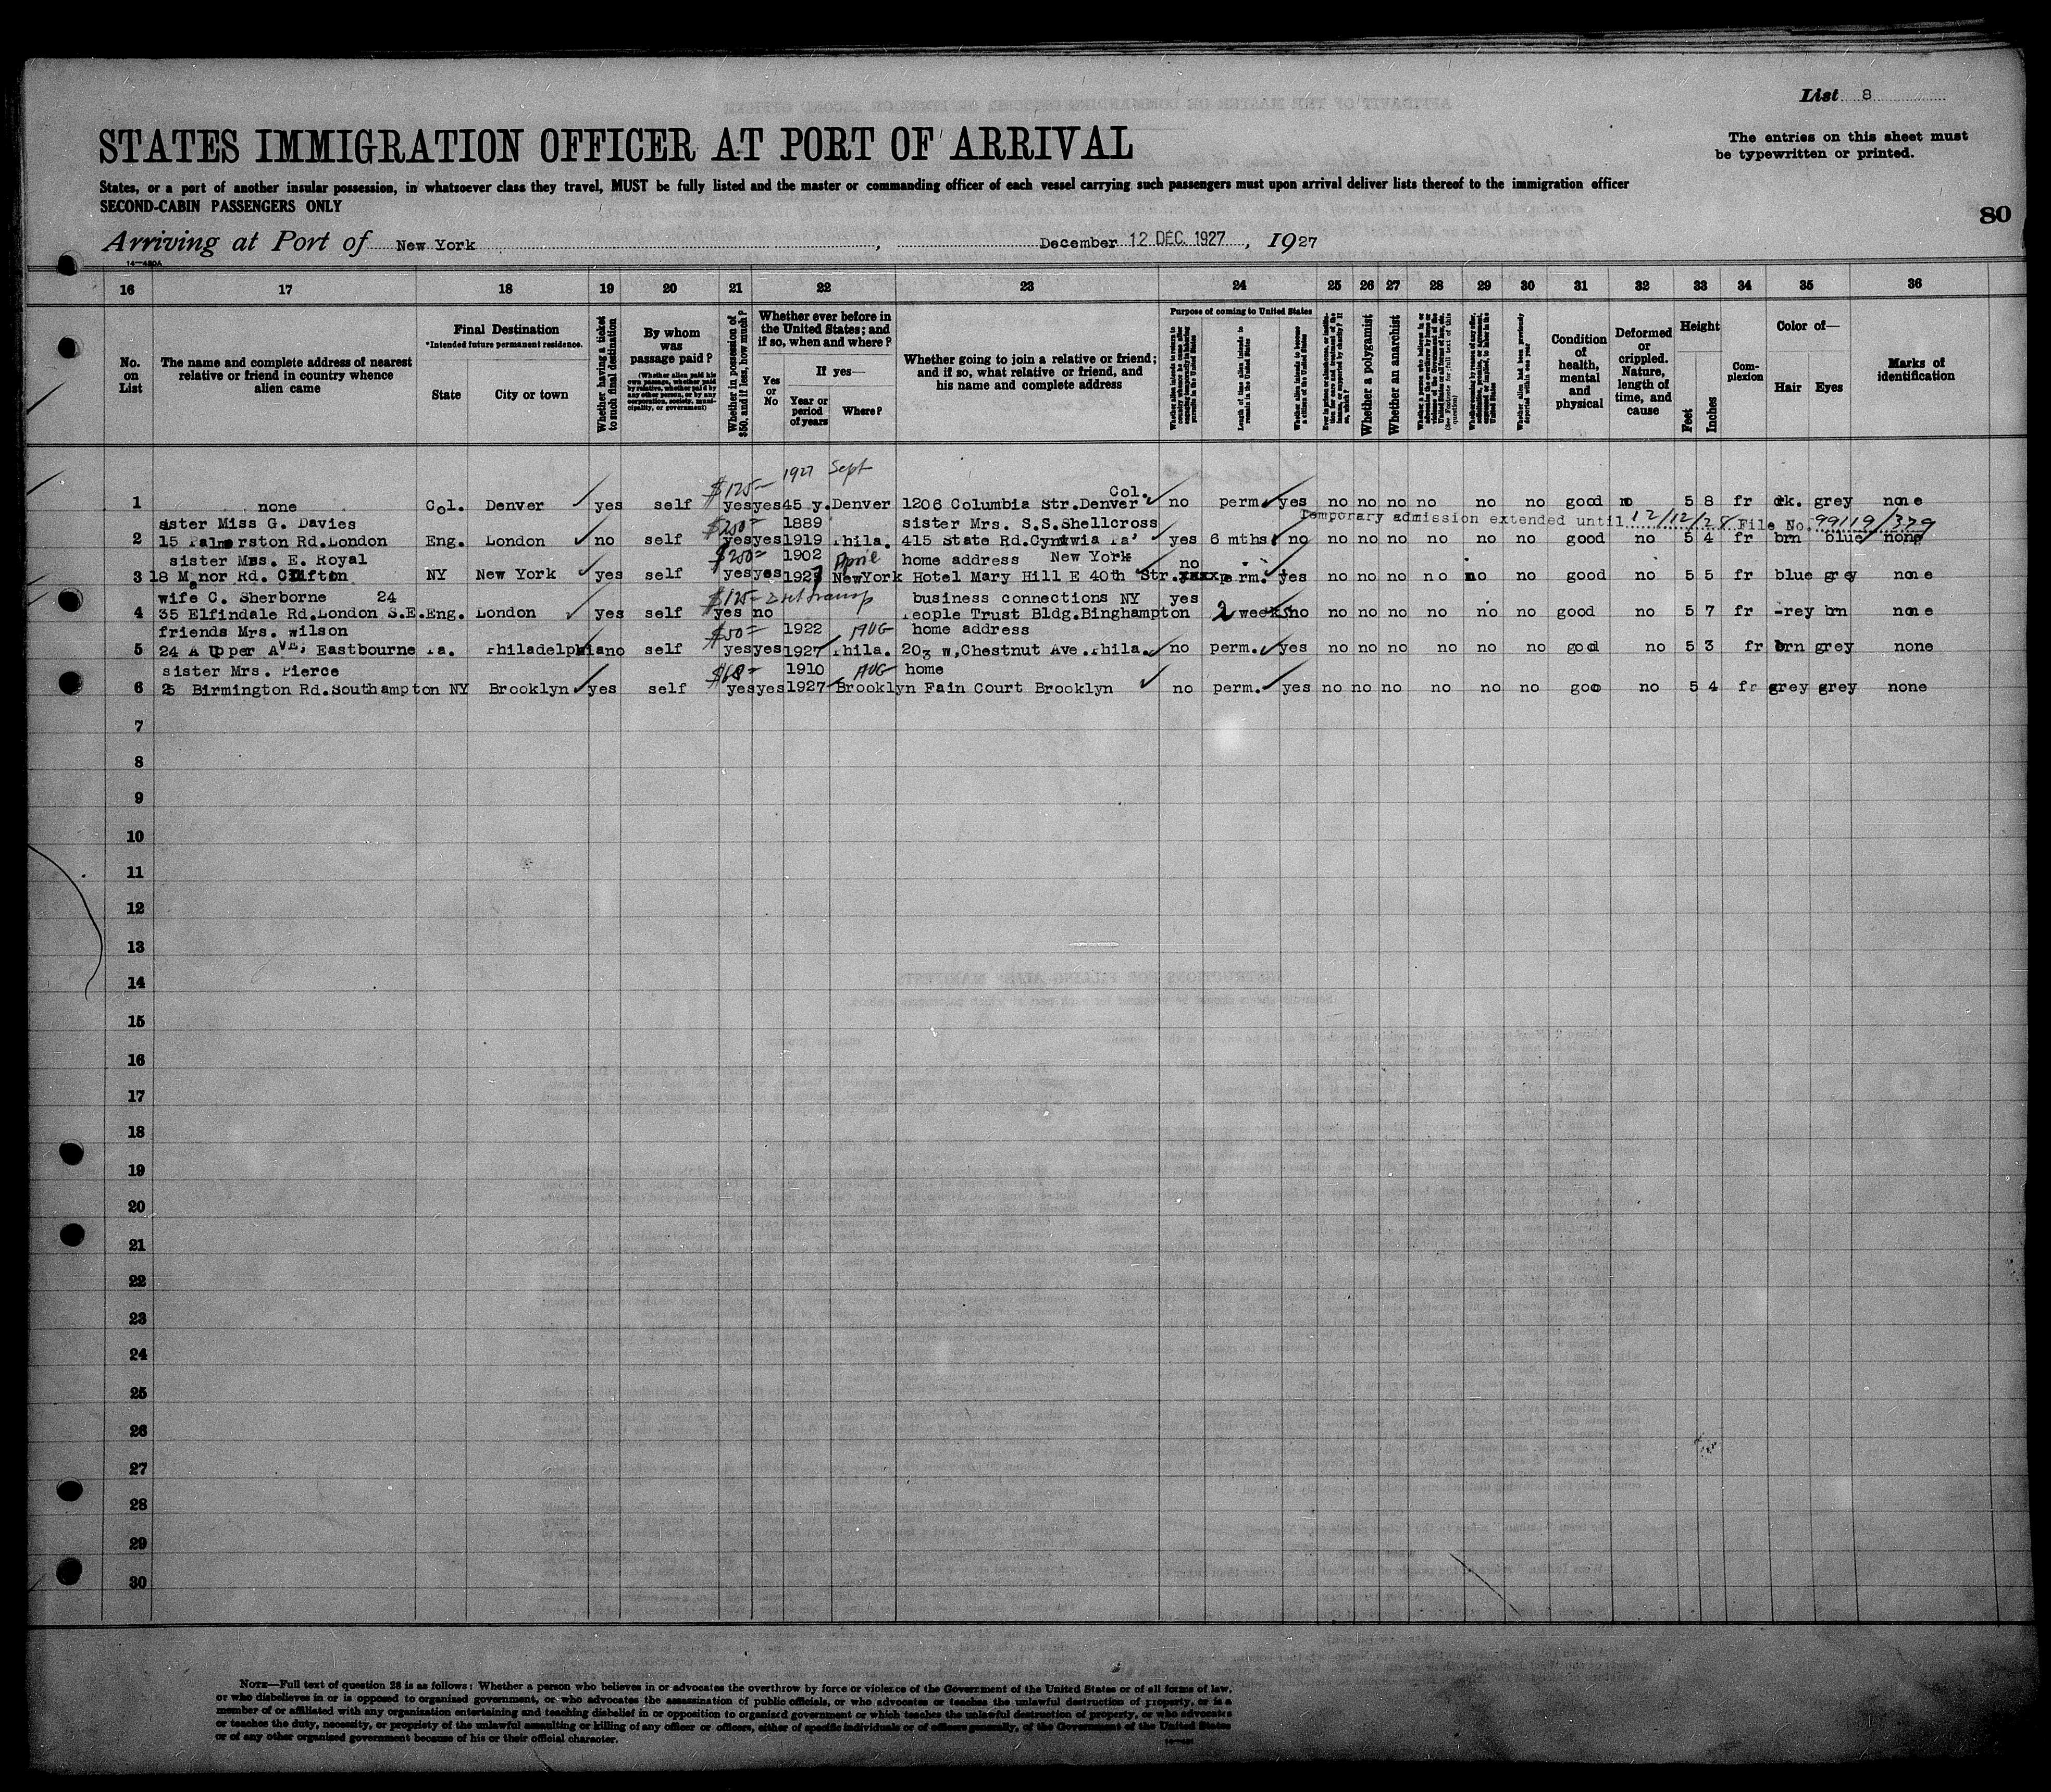 List 8
STATES IMMIGRATION OFFICER AT PORT OF ARRIVAL
The entries on this sheet must
be typewritten or printed.
States, or a port of another insular possession, in whatsoever class they travel, MUST be fully listed and the master or commanding officer of each vessel carrying such passengers must upon arrival deliver lists thereof to the immigration officer
SECOND-CABIN PASSENGERS ONLY
80
Arriving at Port of New York, December 12 DEC. 1927, 1927
16 17 18 19 20 21 22 23 24 25 26 27 28 29 30 31 32 33 34 35 36
No. on List
The name and complete address of nearest relative or friend in country whence alien came
Final Destination
*Intended future permanent residence.
State
City or town
Whether having a ticket to such final destination
By whom was passage paid?
(Whether alien paid his own passage, whether paid by relative, whether paid by any other person, or by any corporation, society, municipality, or government)
Whether in possession of $50, and if less, how much?
Whether ever before in the United States; and if so, when and where?
Yes or No
If yes—
Year or period of years
Where?
Whether going to join a relative or friend; and if so, what relative or friend, and his name and complete address
Purpose of coming to United States
Length of time alien intends to remain in the United States
Whether alien intends to become a citizen of the United States
Whether a polygamist
Whether an anarchist
Whether alien had been previously deported within one year
Condition of health, mental and physical
Deformed or crippled. Nature, length of time, and cause
Height
Feet
Inches
Complexion
Color of—
Hair
Eyes
Marks of identification
1927 Sept
$125- Col.
1 none Col. Denver yes self yes yes 45 y. Denver 1206 Columbia Str. Denver no perm. yes no no no no no no good no 5 8 fr dk. grey none
sister Miss G. Davies $200= 1889 sister Mrs. S.S.Shellcross Temporary admission extended until 12/12/28 File No. 99119/379
2 15 Palmerston Rd. London Eng. London no self yes yes 1919 Phila. 415 State Rd. Cynwia Pa' yes 6 mths. no no no no no no no good no 5 4 fr brn blue none
sister Mrs. E. Royal $200= 1902 April home address New York no
3 18 Manor Rd. Clifton NY New York yes self yes yes 1927 NewYork Hotel Mary Hill E 40th Str. xxxx perm. yes no no no no no no good no 5 5 fr blue grey none
wife C. Sherborne 24 $125- business connections NY yes
4 35 Elfindale Rd. London S.E. Eng. London yes self yes no People Trust Bldg. Binghampton 2 weeks no no no no no no no good no 5 7 fr grey brn none
friends Mrs. wilson $50= 1922 AUG home address
5 24 A Upper AVE, Eastbourne Pa. Philadelphia no self yes yes 1927 Phila. 203 w, Chestnut Ave. Phila. no perm. yes no no no no no no good no 5 3 fr brn grey none
sister Mrs. Pierce $68= 1910 AUG home
6 25 Birmington Rd. Southampton NY Brooklyn yes self yes yes 1927 Brooklyn Fain Court Brooklyn no perm. yes no no no no no no good no 5 4 fr grey grey none
7
8
9
10
11
12
13
14
15
16
17
18
19
20
21
22
23
24
25
26
27
28
29
30
NOTE—Full text of question 28 is as follows: Whether a person who believes in or advocates the overthrow by force or violence of the Government of the United States or of all forms of law,
or who disbelieves in or is opposed to organized government, or who advocates the assassination of public officials, or who advocates or teaches the unlawful destruction of property, or is a
member of or affiliated with any organization entertaining and teaching disbelief in or opposition to organized government or which teaches the unlawful destruction of property, or who advocates
or teaches the duty, necessity, or propriety of the unlawful assaulting or killing of any officer or officers, either of specific individuals or of officers generally, of the Government of the United States
or of any other organized government because of his or their official character.